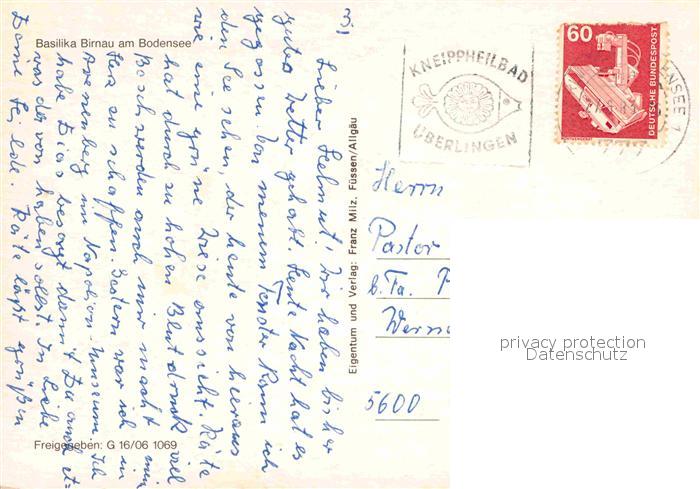 Basilika Birnau am Bodensee
3.)
Lieber Helmut! Wir haben bisher
gutes Wetter gehabt. Heute Nacht hat es
gegossen. Von meinem Fenster kann ich
den See sehen, der heute von hieraus
wie eine grüne Wiese aussieht. Käte
hat durch zu hohen Blutdruck viel
Beschwerden auch mir macht mein
Herz zu schaffen. Gestern war ich in
Arenenberg im Napoleon-Museum. Ich
habe Dias besorgt damit Du auch et=
was davon haben sollst. In Liebe
Deine Käte läßt grüßen
Freigegeben: G 16/06 1069
Eigentum und Verlag: Franz Milz, Füssen/Allgäu
KNEIPPHEILBAD
ÜBERLINGEN
60
DEUTSCHE BUNDESPOST
ENSEE 1
Herrn
Pastor
b. Fa.
5600
privacy protection
Datenschutz